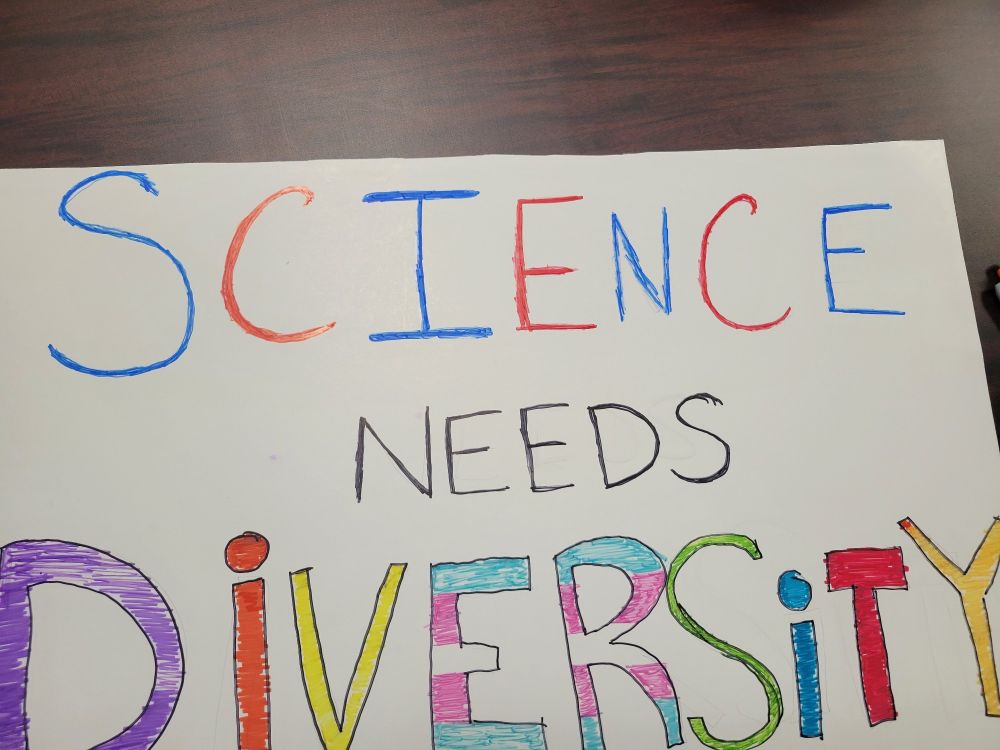 SCIENCE
NEEDS
DiVERSiTY